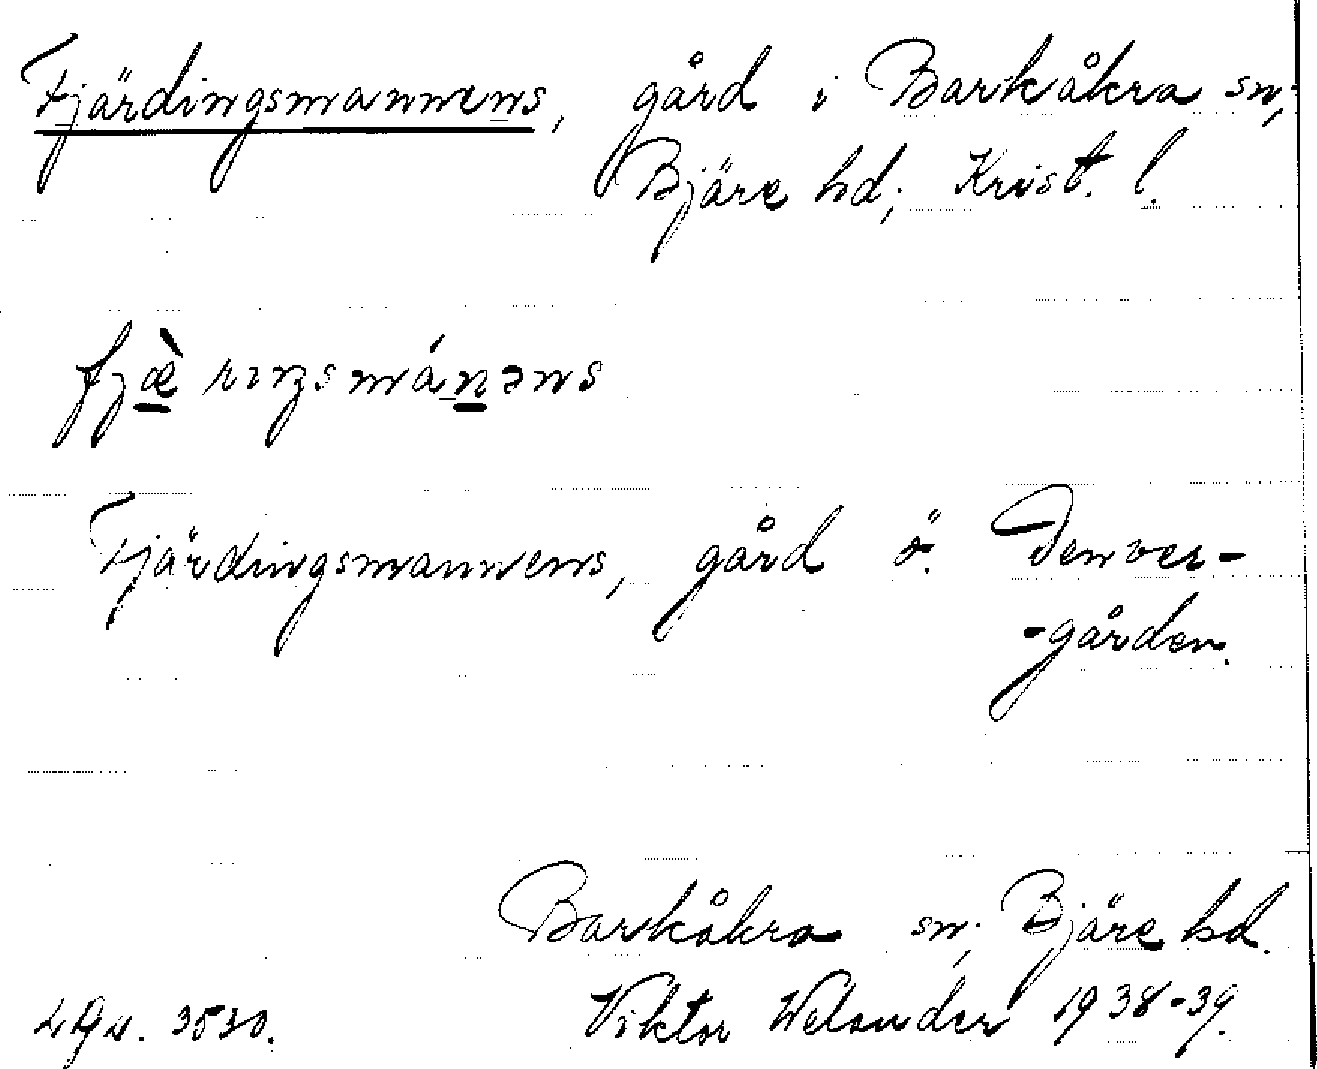 Fjärdingsmannens, gård i Barkåkra sn;
Bjäre hd; Krist. l.
fjæ̀rıŋsmánəns
Fjärdingsmannens, gård ö. Denver-
-gården.
Barkåkra sn; Bjäre hd.
Viktor Welander 1938-39.